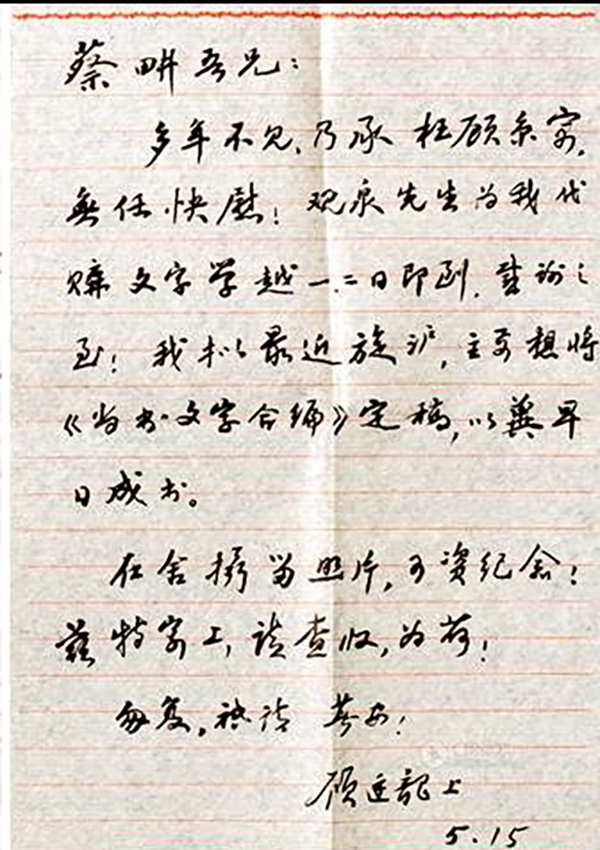 蔡畊吾兄：
多年不见，乃承枉顾京寓，
无任快慰！观泉先生为我代
购文字学越一、二日即到，感谢之
至！我拟最近旋沪，主要想将
《尚书文字合编》定稿，以冀早
日成书。
在舍摄留照片，可资纪念！
兹特寄上，请查收，为荷！
匆复，祗请 著安！
顾廷龙上
5.15